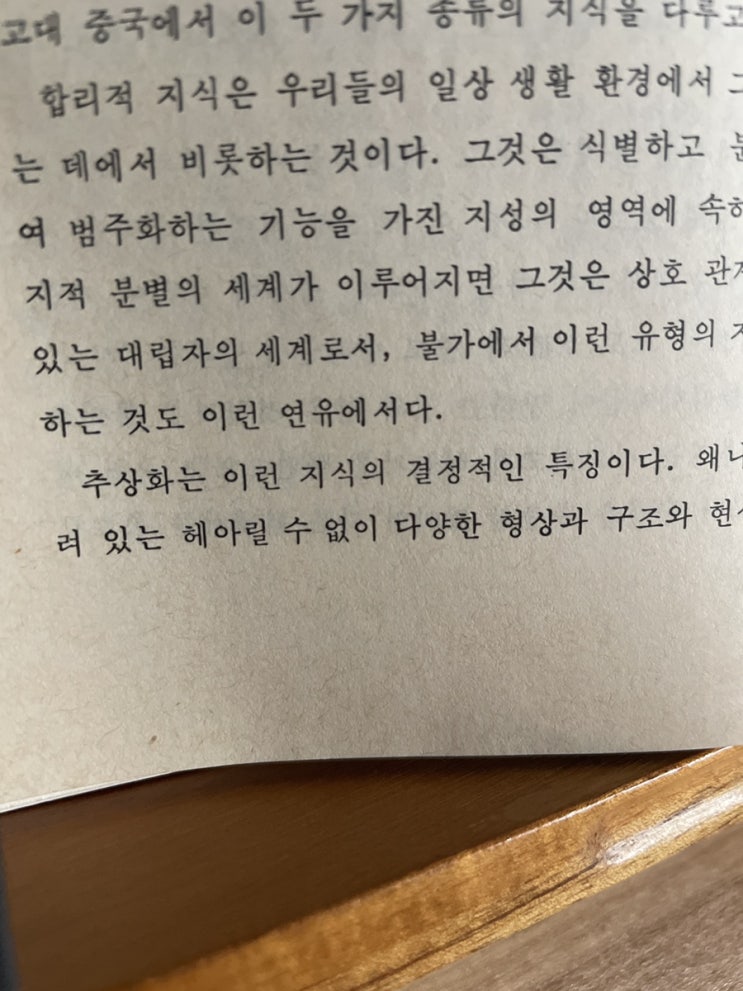 고대 중국에서 이 두 가지 종류의 지식을
합리적 지식은 우리들의 일상 생활 환경에서
는 데에서 비롯하는 것이다. 그것은 식별하고
여 범주화하는 기능을 가진 지성의 영역에
지적 분별의 세계가 이루어지면 그것은 상호
있는 대립자의 세계로서, 불가에서 이런 유형의
하는 것도 이런 연유에서다.
추상화는 이런 지식의 결정적인 특징이다.
려 있는 헤아릴 수 없이 다양한 형상과 구조와